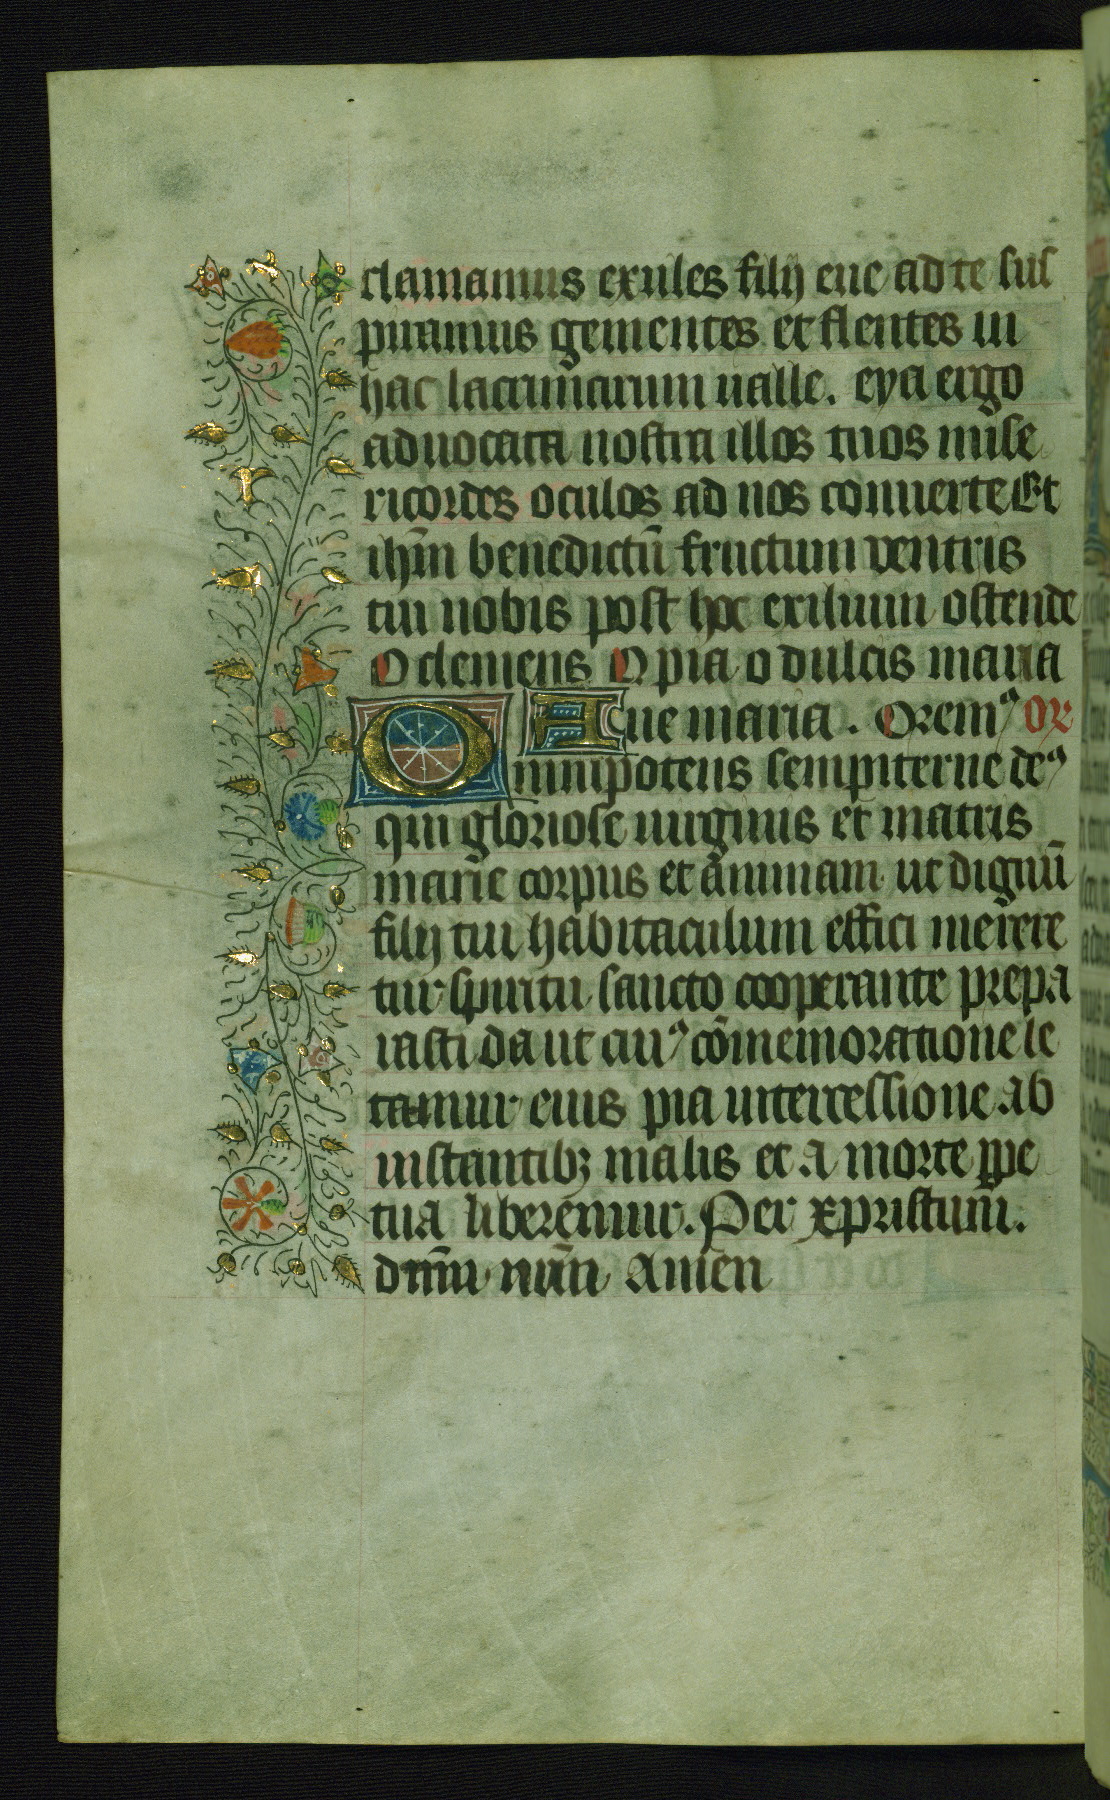 clamamus exules filij eue ad te sus
piramus gementes et flentes in
hac lacrimarum ualle. eya ergo
aduocata nostra illos tuos mise
ricordes oculos ad nos conuerte Et
ihm̄ benedictū fructum ventris
tui nobis post hoc exilium ostende
O clemens O pia o dulcis maria
Aue maria. Oremꝰ or
Omnipotens sempiterne deꝰ
qui gloriose uirginis et matris
marie corpus et animam ut dignū
filij tui habitaculum effici merere
tur spiritu sancto cooperante prepa
rasti da ut cuiꝰ cōmemoratione le
tamur eius pia intercessione ab
instantibꝫ malis et a morte ꝑpe
tua liberemur. Per xpristum.
dn̄m nr̄m Amen